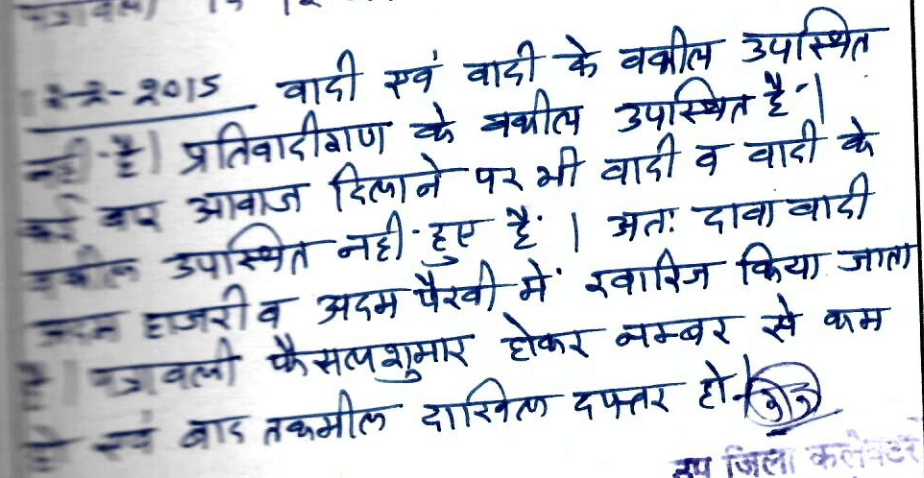 12-2-2015 वादी एवं वादी के वकील उपस्थित
नही है। प्रतिवादीगण के वकील उपस्थित है।
कई बार आवाज दिलाने पर भी वादी व वादी के
वकील उपस्थित नही हुए है। अतः दावा वादी
अदम हाजरी व अदम पैरवी में खारिज किया जाता
है। पत्रावली फैसलशुमार होकर नम्बर से कम
हो एवं बाद तकमील दाखिल दफ्तर हो।
उप जिला कलेक्टर